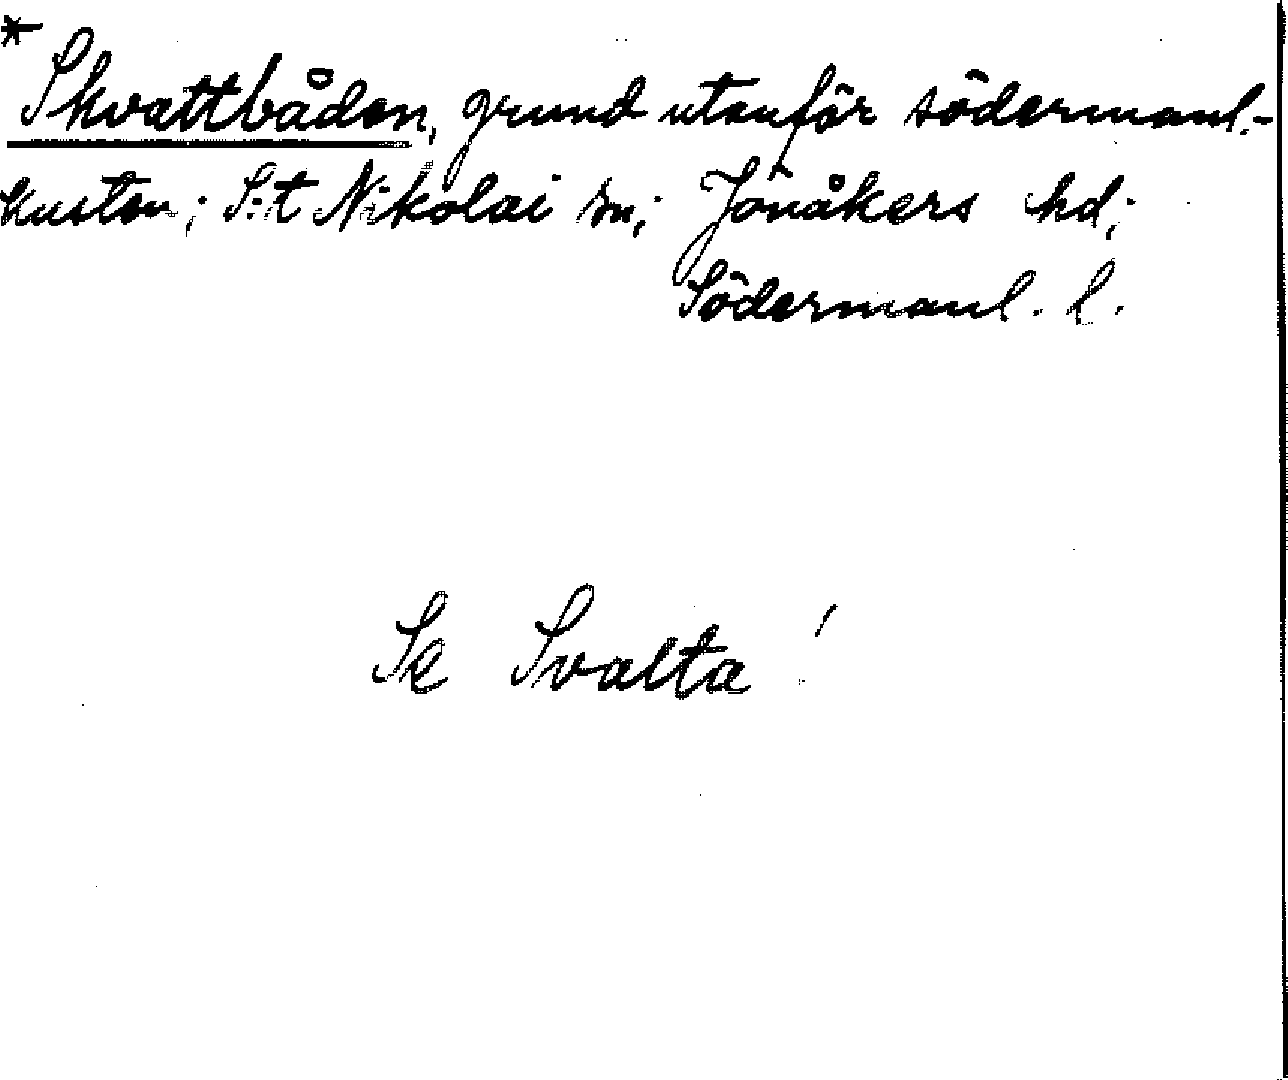 * Skvattbåden, grund utanför södermanl.-
kusten; S:t Nikolai sn; Jönåkers hd;
Södermanl. l.
Se Svalta!